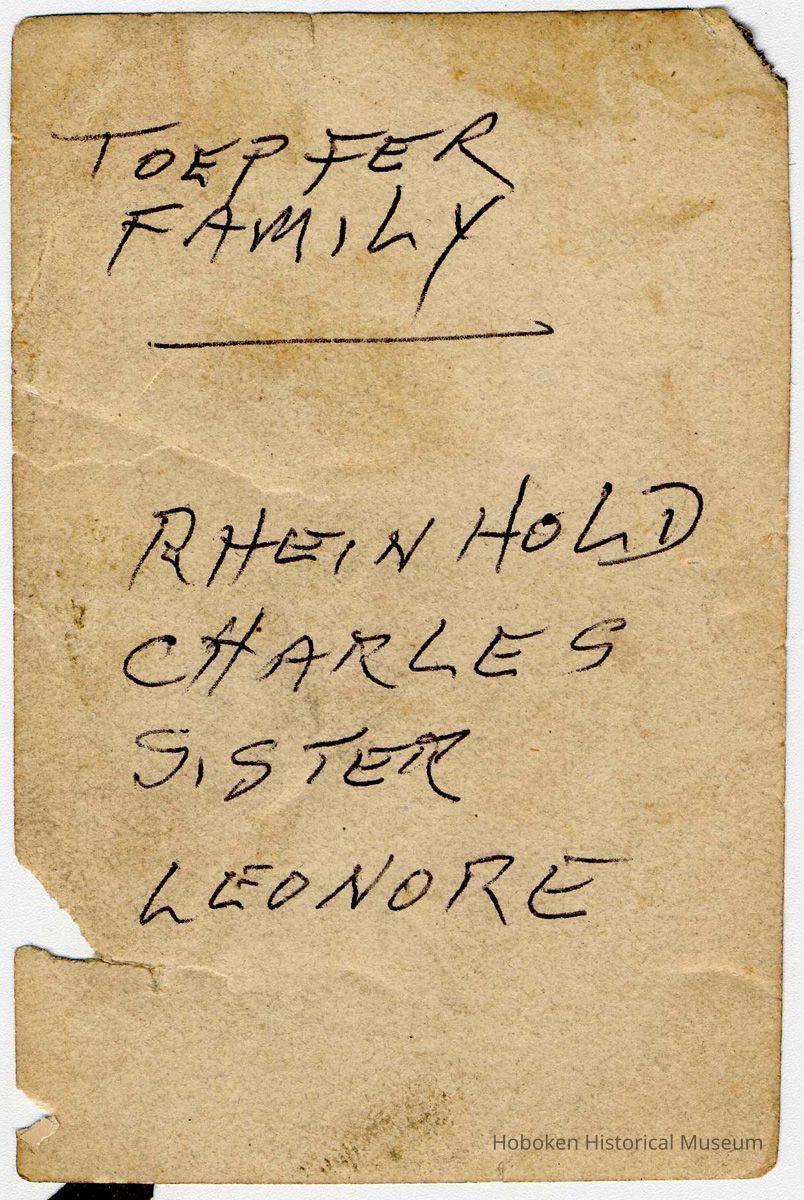 TOEPFER
FAMILY
RHEINHOLD
CHARLES
SISTER
LEONORE
Hoboken Historical Museum